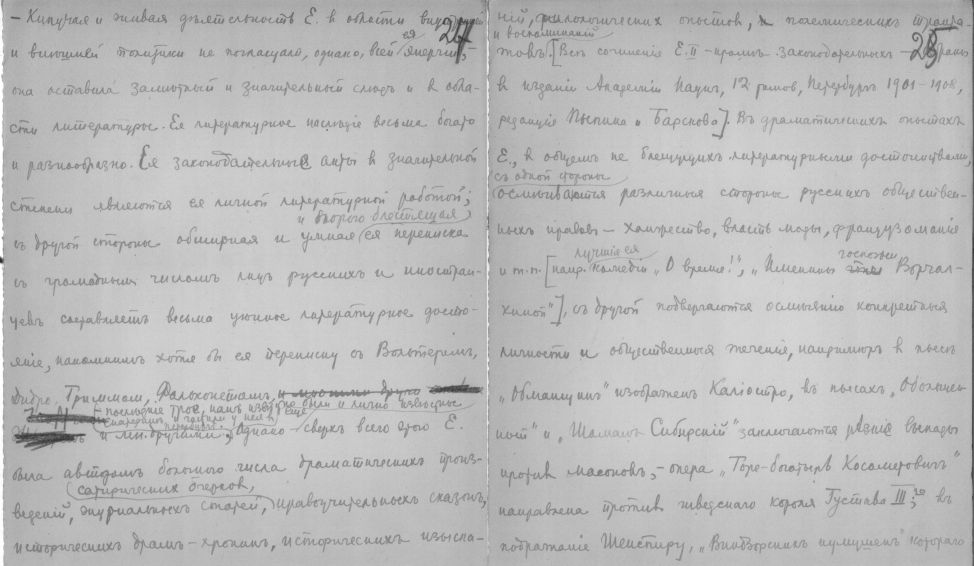 — Кипучая и живая дѣятельность Е. в области внутренней
и внѣшней политики не поглащало, однако, всей ея энергии,
24
она оставила заметный и значительный слѣдъ и в обла-
сти литературы. Ея литературное наслѣдіе весьма богато
и разнообразно. Ея законодательные акты в значительной
степени являются ея личной литературной работой;
и бойкого блестящая
съ другой стороны обширная и умная ея переписка
съ громаднымъ числомъ лицъ русскихъ и иностран-
цевъ составляетъ весьма ценное литературное досто-
яніе, напомнимъ хотя бы ея переписку съ Вольтеромъ,
Дидро, Гриммомъ, Фальконетомъ,
последние трое, какъ известно были и лично известны
и мн. другими. Однако сверхъ всего этого Е.
была авторомъ большого числа драматическихъ произ-
сатирическихъ очерковъ,
веденій, журнальныхъ статей, нравоучительныхъ сказокъ,
историческихъ драмъ-хроникъ, историческихъ изыска-
ній, филологическихъ опытовъ, и полемическихъ тракта-
и воспоминаній
25
товъ. [Всѣ сочинения Е. II — кромѣ законодательныхъ — собраны
в изданіи Академіи Наукъ, 12 томовъ, Петербургъ 1901–1908,
редакція Пыпина и Барскова]. Въ драматическихъ опытахъ
Е., в общемъ не блещущихъ литературными достоинствами,
съ одной стороны
осмѣиваются различныя стороны русскихъ обществен-
ныхъ нравовъ — ханжество, власть моды, французоманія
лучшія ея
госпожи
и т.п. [напр. комедіи „О время!", „Именины Ворчал-
киной"], съ другой подвергаются осмѣянію конкретныя
личности и общественныя теченія, напримѣръ в пьесѣ
„Обманщикъ" изображенъ Каліостро, въ пьесахъ „Обольщен-
ный" и „Шаманъ Сибирскій" заключаются рѣзкіе выпады
противъ масоновъ, — опера „Горе-богатырь Косометовичъ"
направлена противъ шведскаго короля Густава III-го; въ
подражаніе Шекспиру, „Виндзорскихъ кумушекъ" котораго